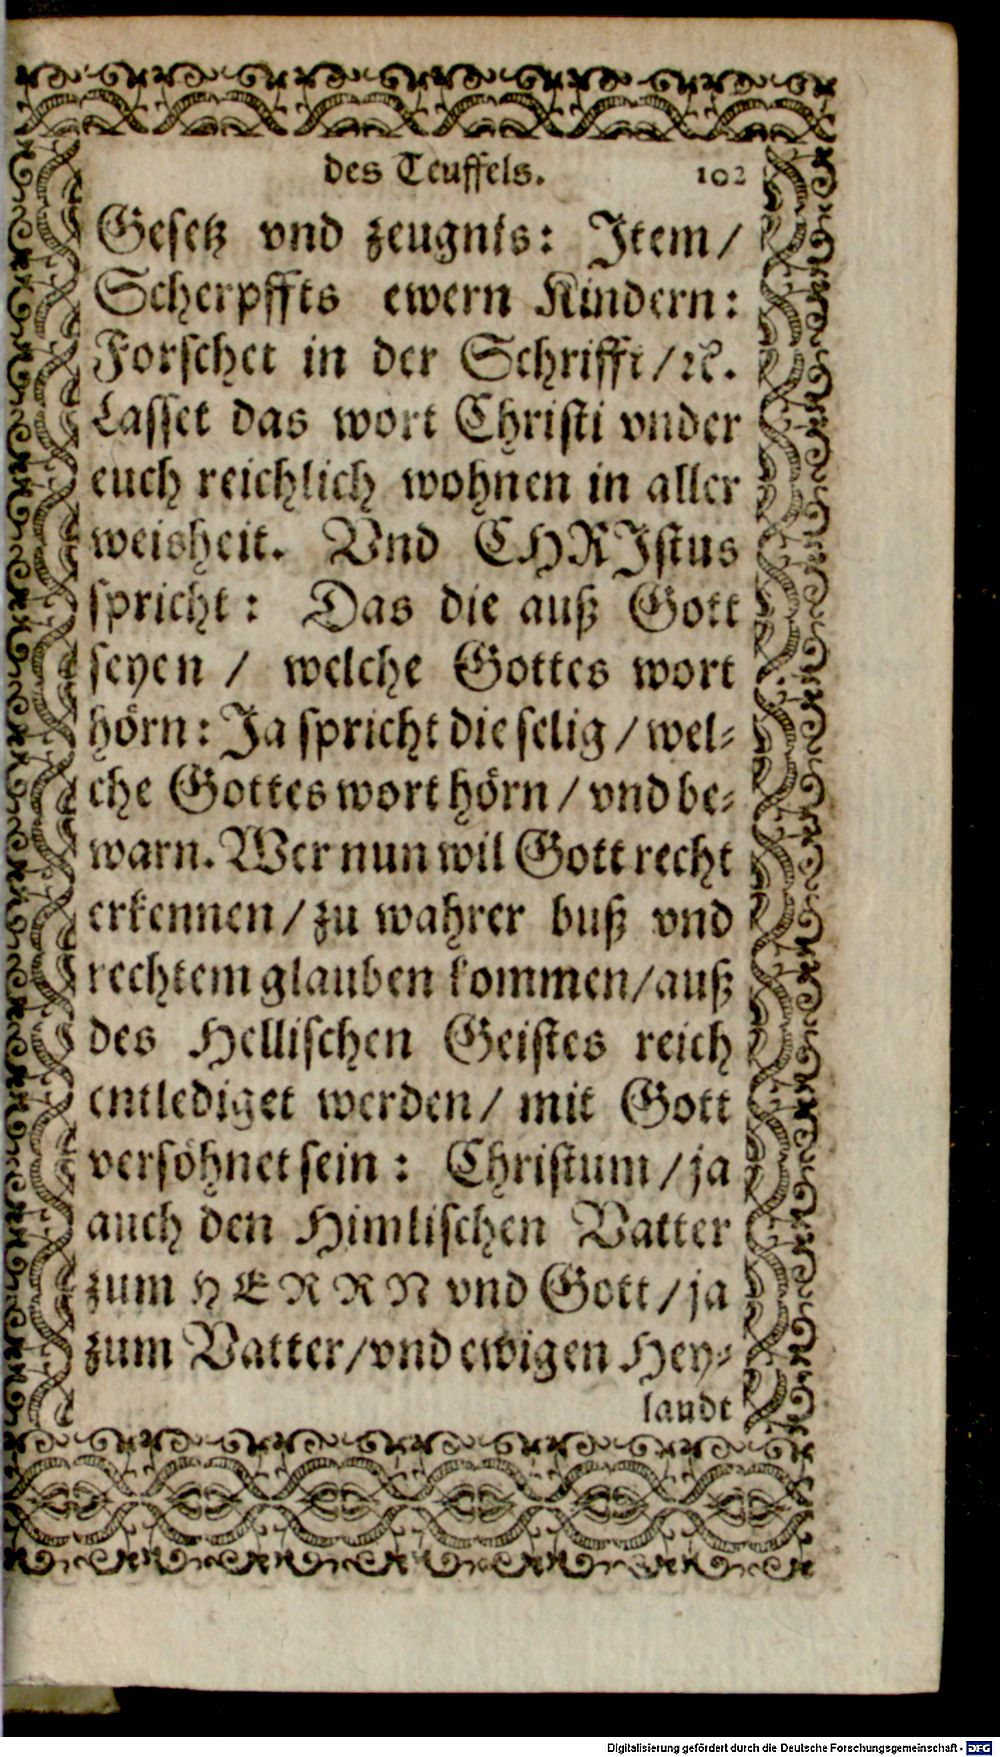 des Teuffels. 102
Gesetz vnd zeugnis: Item/
Scherpffts ewern Kindern:
Forschet in der Schrifft/ ꝛc.
Lasset das wort Christi vnder
euch reichlich wohnen in aller
weisheit. Vnd CHRIstus
spricht: Das die auß Gott
seyen / welche Gottes wort
hörn: Ja spricht die selig / wel⸗
che Gottes wort hörn / vnd be⸗
warn. Wer nun wil Gott recht
erkennen / zu wahrer buß vnd
rechtem glauben kommen/auß
des Hellischen Geistes reich
entlediget werden / mit Gott
versöhnet sein: Christum / ja
auch den Himlischen Vatter
zum HERRN vnd Gott / ja
zum Vatter/vnd ewigen Hey⸗
landt
Digitalisierung gefördert durch die Deutsche Forschungsgemeinschaft - DFG